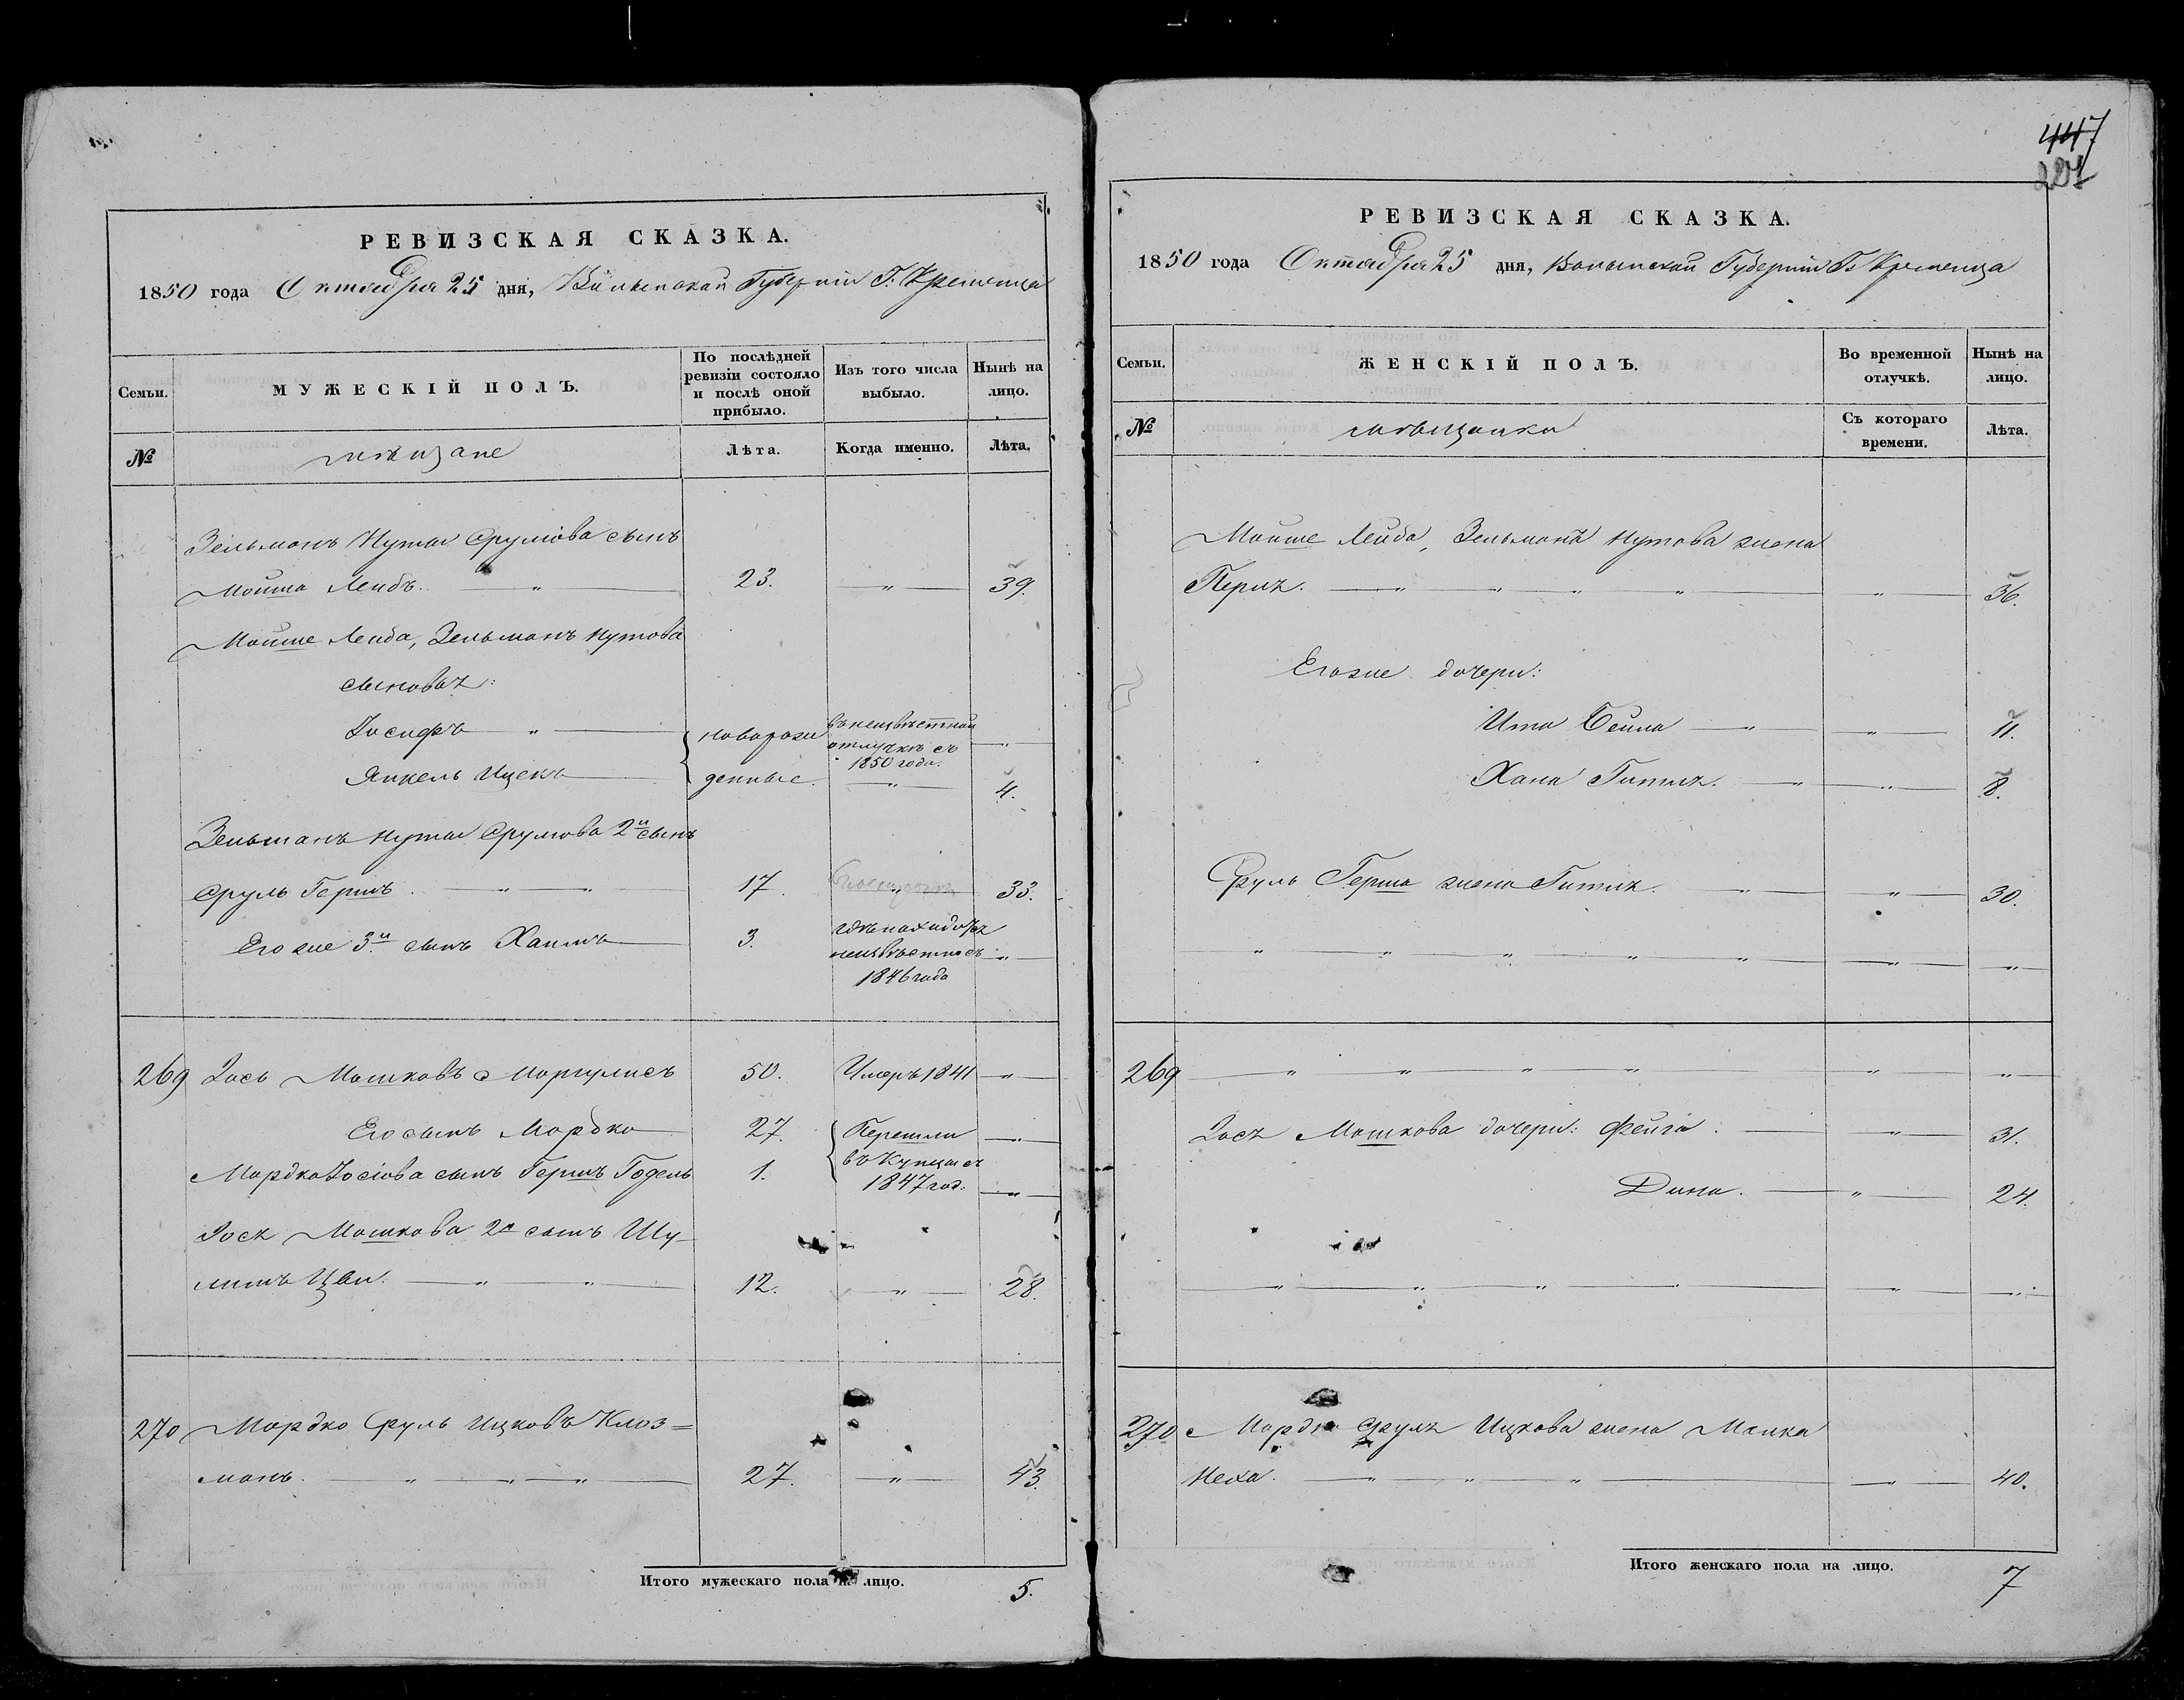 РЕВИЗСКАЯ СКАЗКА.
1850 года Октября 25 дня, Волынской Губерніи Г. Кременца
Семьи.
МУЖЕСКІЙ ПОЛЪ.
По послѣдней ревизіи состояло и послѣ оной прибыло.
Изъ того числа выбыло.
Нынѣ на лицо.
№
мѣщане
Лѣта.
Когда именно.
Лѣта.
Зельманъ Нуты Срулiова сынъ
Мошко Лейбъ. — „ — 23. — „ — 39.
Мойше Лейба, Зельманъ Нутова
сыновья:
Іосифъ — „ — новорож въ неизвѣстной отлучкѣ съ 1850 года. — „ —
Янкель Ицекъ — денные. — „ — 4.
Зельманъ Нуты Срулiова 2й сынъ
Сруль Гершъ. — „ — „ — 17. „ 33.
Его же 3й сынъ Хаимъ — 3. гдѣ находится неизвѣстно съ 1846 года — „ —
269 Іось Мошковъ Моргулисъ 50. Умеръ 1841 — „ —
Его сынъ Мордко — 27. Перешли — „ —
Мордка Іосіова сынъ Гершъ Годель 1. въ купцы съ 1847 год. — „ —
Іося Мошкова 2й сынъ Шу-
лимъ Цви. — „ — „ — 12. — „ — 28.
270 Мордко Сруль Ицковъ Клоз=
манъ. — „ — „ — „ — 27. — „ — 43.
Итого мужескаго пола на лицо. 5.
447
РЕВИЗСКАЯ СКАЗКА.
1850 года Октября 25 дня, Волынской Губерніи Гъ Кременца
Семьи.
ЖЕНСКІЙ ПОЛЪ.
Во временной отлучкѣ.
Нынѣ на лицо.
№
мѣщанки
Съ котораго времени.
Лѣта.
Мойше Лейба, Зельмана Нутова жена
Перля. — „ — „ — „ — „ — „ — 36.
Его же дочери:
Ита Бейла — „ — „ — 11.
Хана Гитля. — „ — „ — 8.
Сруль Герша жена Гитля. „ — „ — 30.
„ — „ — „ — „ — „ — „ — „ —
269 — „ — „ — „ — „ — „ — „ —
Іося Мошкова дочери: Фейга. — „ — 31.
Дина. — „ — 24.
— „ — „ — „ — „ — „ —
270 Мордко Сруля Ицкова жена Малка
Неха. — „ — „ — „ — „ — 40.
Итого женскаго пола на лицо. 7